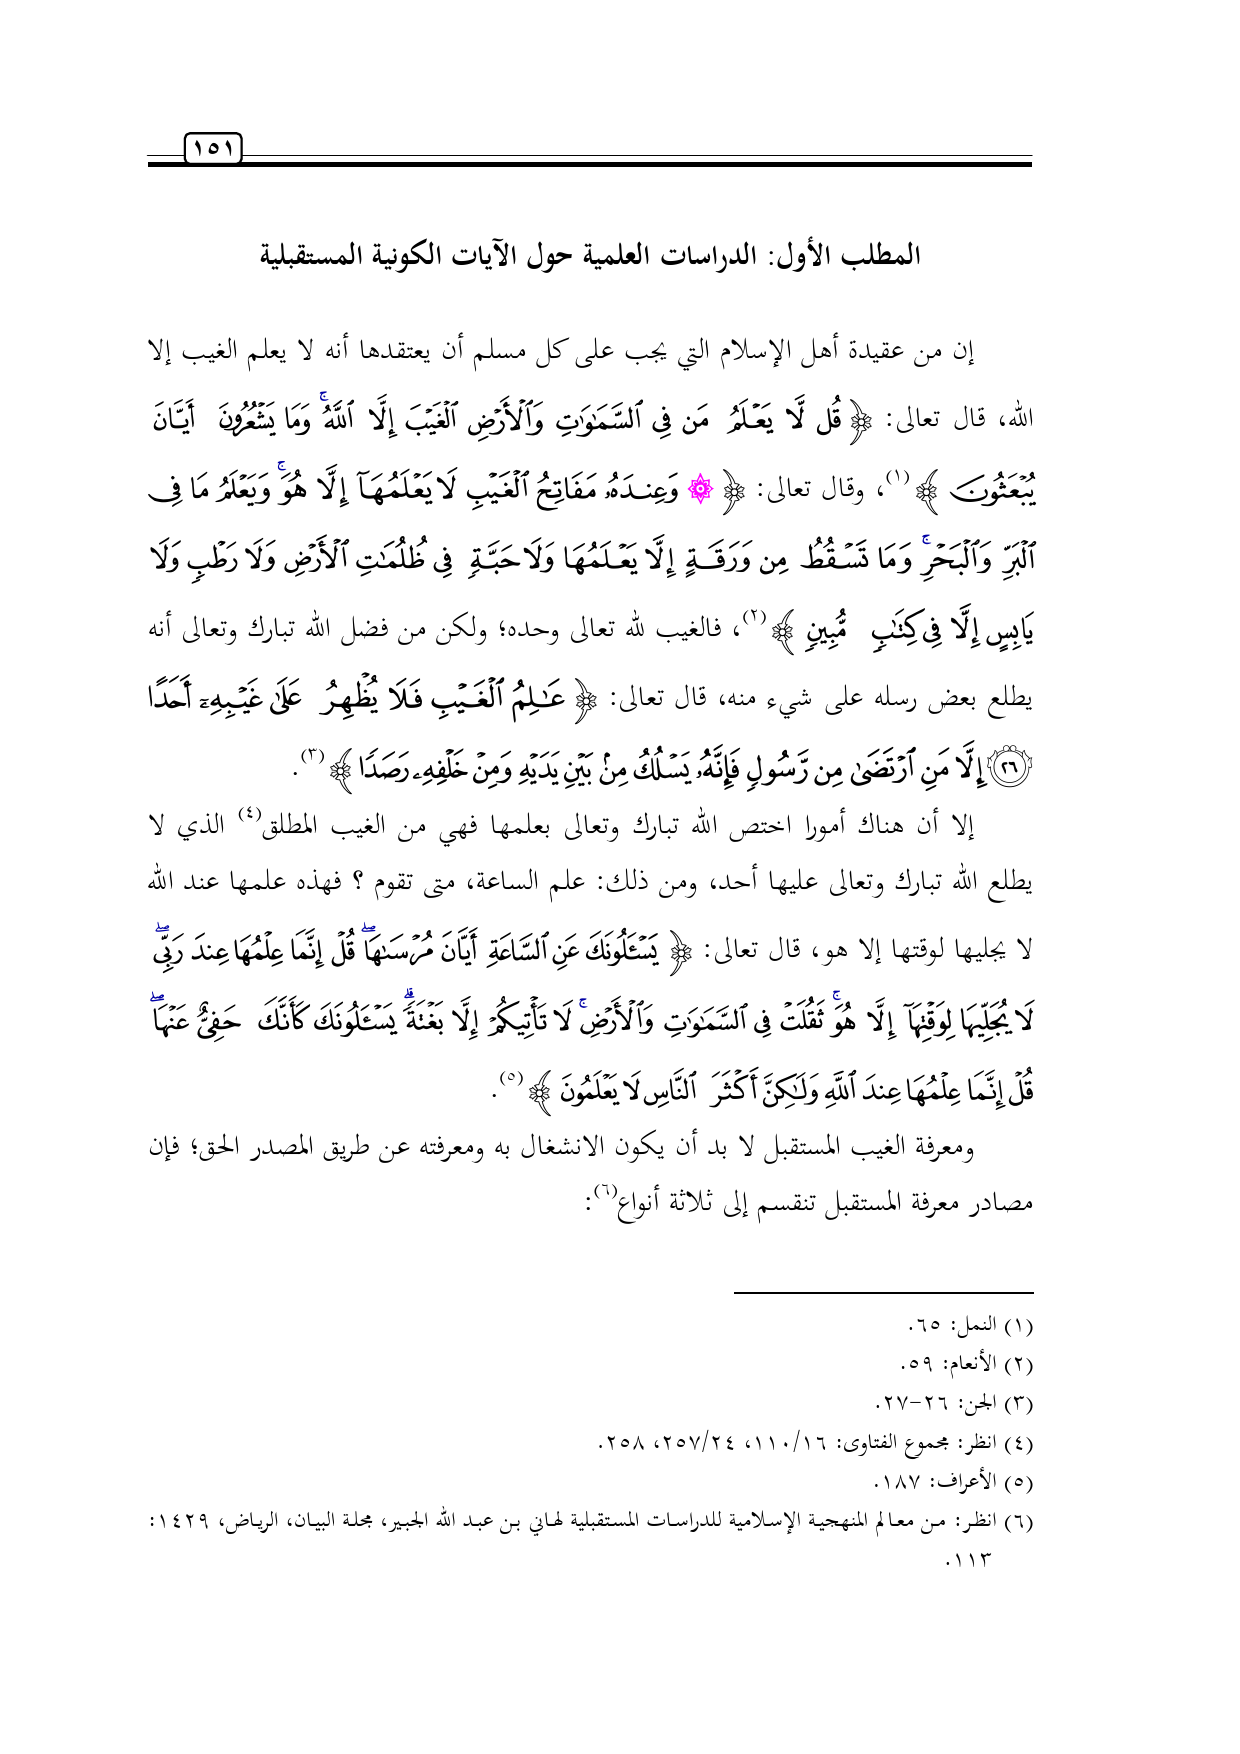 ١٥١
المطلب الأول: الدراسات العلمية حول الآيات الكونية المستقبلية
إن من عقيدة أهل الإسلام التي يجب على كل مسلم أن يعتقدها أنه لا يعلم الغيب إلا
الله، قال تعالى: ﴿ قُل لَّا يَعْلَمُ مَن فِي ٱلسَّمَٰوَٰتِ وَٱلْأَرْضِ ٱلْغَيْبَ إِلَّا ٱللَّهُ ۚ وَمَا يَشْعُرُونَ أَيَّانَ
يُبْعَثُونَ ﴾(١)، وقال تعالى: ﴿ ۞ وَعِندَهُۥ مَفَاتِحُ ٱلْغَيْبِ لَا يَعْلَمُهَآ إِلَّا هُوَ ۚ وَيَعْلَمُ مَا فِى
ٱلْبَرِّ وَٱلْبَحْرِ ۚ وَمَا تَسْقُطُ مِن وَرَقَةٍ إِلَّا يَعْلَمُهَا وَلَا حَبَّةٍ فِى ظُلُمَٰتِ ٱلْأَرْضِ وَلَا رَطْبٍ وَلَا
يَابِسٍ إِلَّا فِى كِتَٰبٍ مُّبِينٍ ﴾(٢)، فالغيب لله تعالى وحده؛ ولكن من فضل الله تبارك وتعالى أنه
يطلع بعض رسله على شيء منه، قال تعالى: ﴿ عَٰلِمُ ٱلْغَيْبِ فَلَا يُظْهِرُ عَلَىٰ غَيْبِهِۦٓ أَحَدًا
۝٢٦ إِلَّا مَنِ ٱرْتَضَىٰ مِن رَّسُولٍ فَإِنَّهُۥ يَسْلُكُ مِنۢ بَيْنِ يَدَيْهِ وَمِنْ خَلْفِهِۦ رَصَدًا ﴾(٣).
إلا أن هناك أمورا اختص الله تبارك وتعالى بعلمها فهي من الغيب المطلق(٤) الذي لا
يطلع الله تبارك وتعالى عليها أحد، ومن ذلك: علم الساعة، متى تقوم ؟ فهذه علمها عند الله
لا يجليها لوقتها إلا هو، قال تعالى: ﴿ يَسْـَٔلُونَكَ عَنِ ٱلسَّاعَةِ أَيَّانَ مُرْسَىٰهَا ۖ قُلْ إِنَّمَا عِلْمُهَا عِندَ رَبِّى ۖ
لَا يُجَلِّيهَا لِوَقْتِهَآ إِلَّا هُوَ ۚ ثَقُلَتْ فِى ٱلسَّمَٰوَٰتِ وَٱلْأَرْضِ ۚ لَا تَأْتِيكُمْ إِلَّا بَغْتَةً ۗ يَسْـَٔلُونَكَ كَأَنَّكَ حَفِىٌّ عَنْهَا ۖ
قُلْ إِنَّمَا عِلْمُهَا عِندَ ٱللَّهِ وَلَٰكِنَّ أَكْثَرَ ٱلنَّاسِ لَا يَعْلَمُونَ ﴾(٥).
ومعرفة الغيب المستقبل لا بد أن يكون الانشغال به ومعرفته عن طريق المصدر الحق؛ فإن
مصادر معرفة المستقبل تنقسم إلى ثلاثة أنواع(٦):
(١) النمل: ٦٥.
(٢) الأنعام: ٥٩.
(٣) الجن: ٢٦-٢٧.
(٤) انظر: مجموع الفتاوى: ١١٠/١٦، ٢٥٧/٢٤، ٢٥٨.
(٥) الأعراف: ١٨٧.
(٦) انظر: من معالم المنهجية الإسلامية للدراسات المستقبلية لهاني بن عبد الله الجبير، مجلة البيان، الرياض، ١٤٢٩:
١١٣.